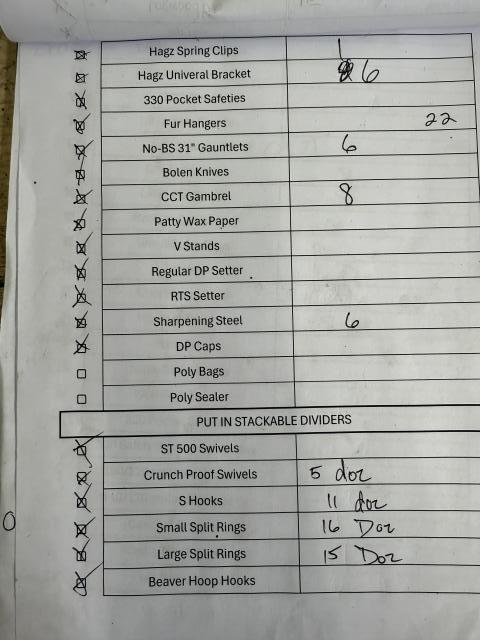 Hagz Spring Clips 1
Hagz Univeral Bracket 6
330 Pocket Safeties
Fur Hangers 22
No-BS 31" Gauntlets 6
Bolen Knives
CCT Gambrel 8
Patty Wax Paper
V Stands
Regular DP Setter
RTS Setter
Sharpening Steel 6
DP Caps
Poly Bags
Poly Sealer
PUT IN STACKABLE DIVIDERS
ST 500 Swivels
Crunch Proof Swivels 5 doz
S Hooks 11 doz
Small Split Rings 16 Doz
Large Split Rings 15 Doz
Beaver Hoop Hooks